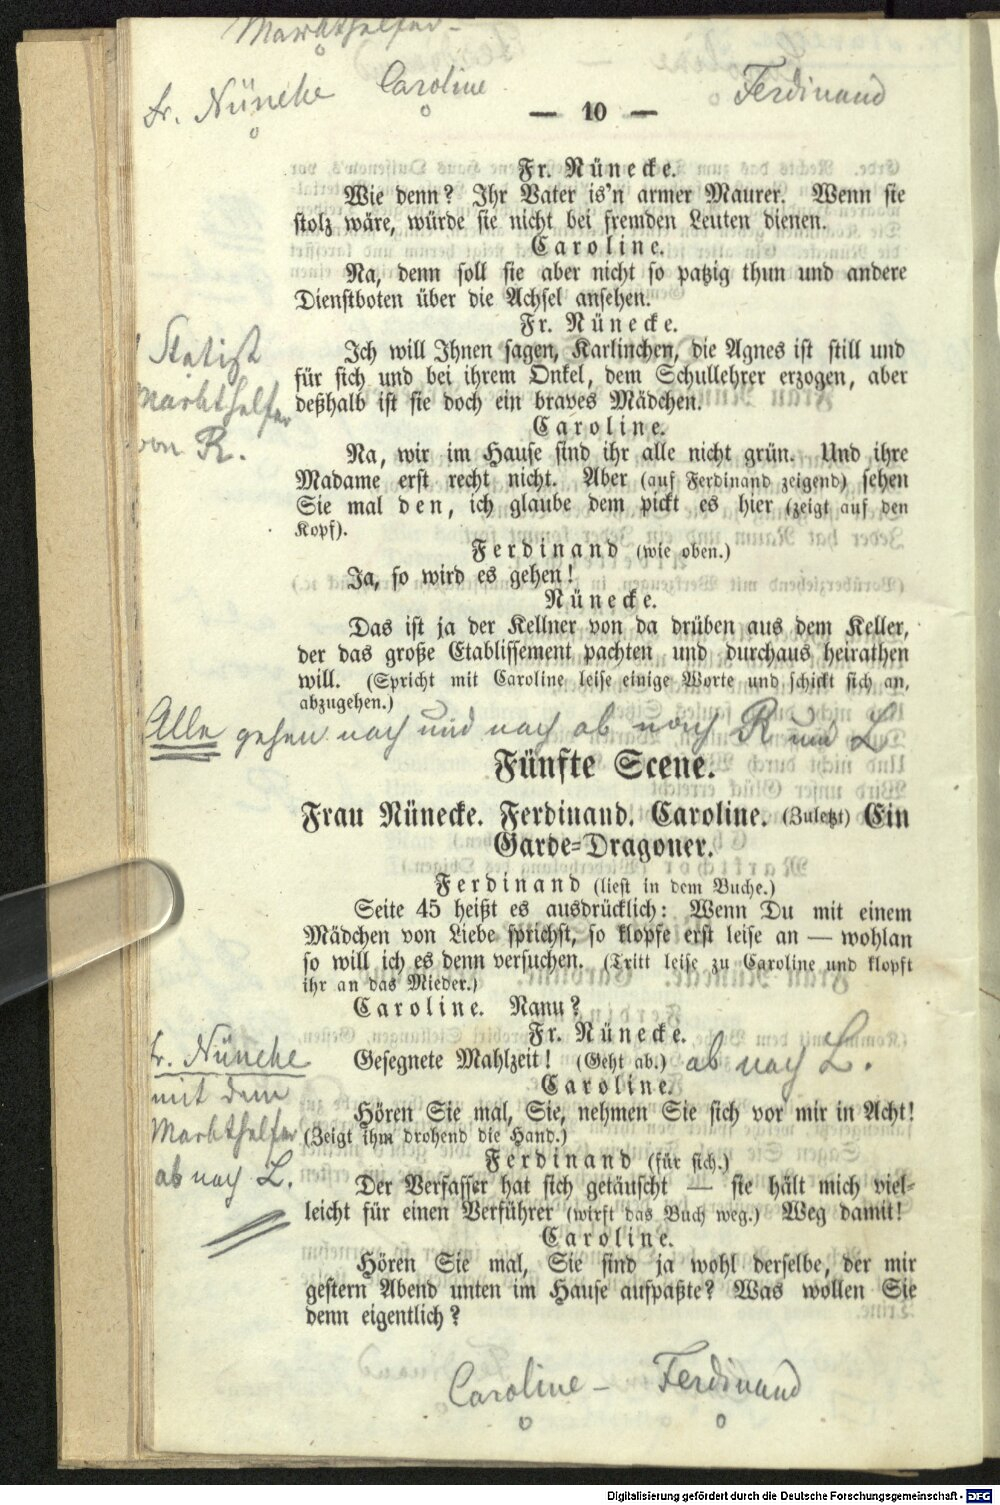 Markthelfer -
fr. Nüneke Caroline Ferdinand
— 10 —
Fr. Nünecke.
Wie denn? Ihr Vater is'n armer Maurer. Wenn sie
stolz wäre, würde sie nicht bei fremden Leuten dienen.
Caroline.
Na, denn soll sie aber nicht so patzig thun und andere
Dienstboten über die Achsel ansehen.
Fr. Nünecke.
Ich will Ihnen sagen, Karlinchen, die Agnes ist still und
für sich und bei ihrem Onkel, dem Schullehrer erzogen, aber
deßhalb ist sie doch ein braves Mädchen.
Statist
Markthelfer
von R.
Caroline.
Na, wir im Hause sind ihr alle nicht grün. Und ihre
Madame erst recht nicht. Aber (auf Ferdinand zeigend) sehen
Sie mal den, ich glaube dem pickt es hier (zeigt auf den
Kopf).
Ferdinand (wie oben.)
Ja, so wird es gehen!
Nünecke.
Das ist ja der Kellner von da drüben aus dem Keller,
der das große Etablissement pachten und durchaus heirathen
will. (Spricht mit Caroline leise einige Worte und schickt sich an,
abzugehen.)
Alle gehen nach und nach ab nach R und L
Fünfte Scene.
Frau Nünecke. Ferdinand. Caroline. (Zuletzt) Ein
Garde-Dragoner.
Ferdinand (liest in dem Buche.)
Seite 45 heißt es ausdrücklich: Wenn Du mit einem
Mädchen von Liebe sprichst, so klopfe erst leise an — wohlan
so will ich es denn versuchen. (Tritt leise zu Caroline und klopft
ihr an das Mieder.)
Caroline. Nanu?
Fr. Nünecke.
Gesegnete Mahlzeit! (Geht ab.) ab nach L.
fr. Nüneke
mit dem
Markthelfer
ab nach L.
Caroline.
Hören Sie mal, Sie, nehmen Sie sich vor mir in Acht!
(Zeigt ihm drohend die Hand.)
Ferdinand (für sich.)
Der Verfasser hat sich getäuscht — sie hält mich viel-
leicht für einen Verführer (wirft das Buch weg.) Weg damit!
Caroline.
Hören Sie mal, Sie sind ja wohl derselbe, der mir
gestern Abend unten im Hause aufpaßte? Was wollen Sie
denn eigentlich?
Caroline - Ferdinand
Digitalisierung gefördert durch die Deutsche Forschungsgemeinschaft - DFG